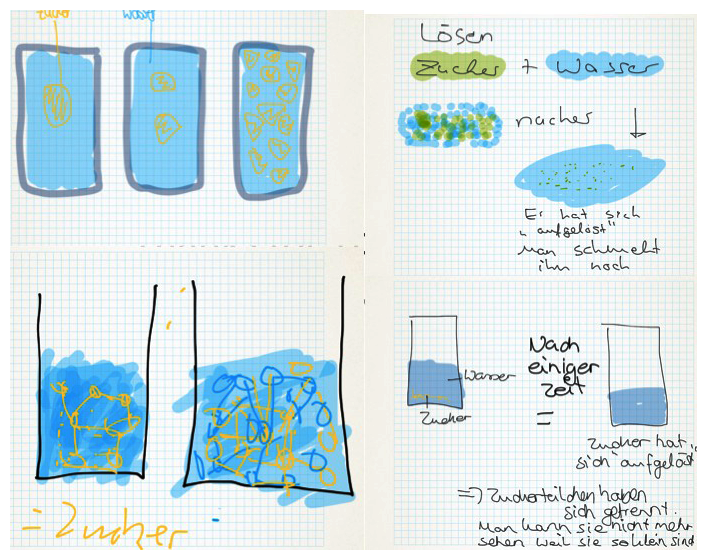 Zucker Wasser
= Zucker
Lösen
Zucker + Wasser
nacher
Er hat sich
"aufgelöst"
Man schmeckt
ihn noch
Wasser
Zucker
Nach
einiger
Zeit
=
Zucker hat
sich "aufgelöst"
=> Zuckerteilchen haben
sich getrennt.
Man kann sie nicht mehr
sehen weil sie so klein sind